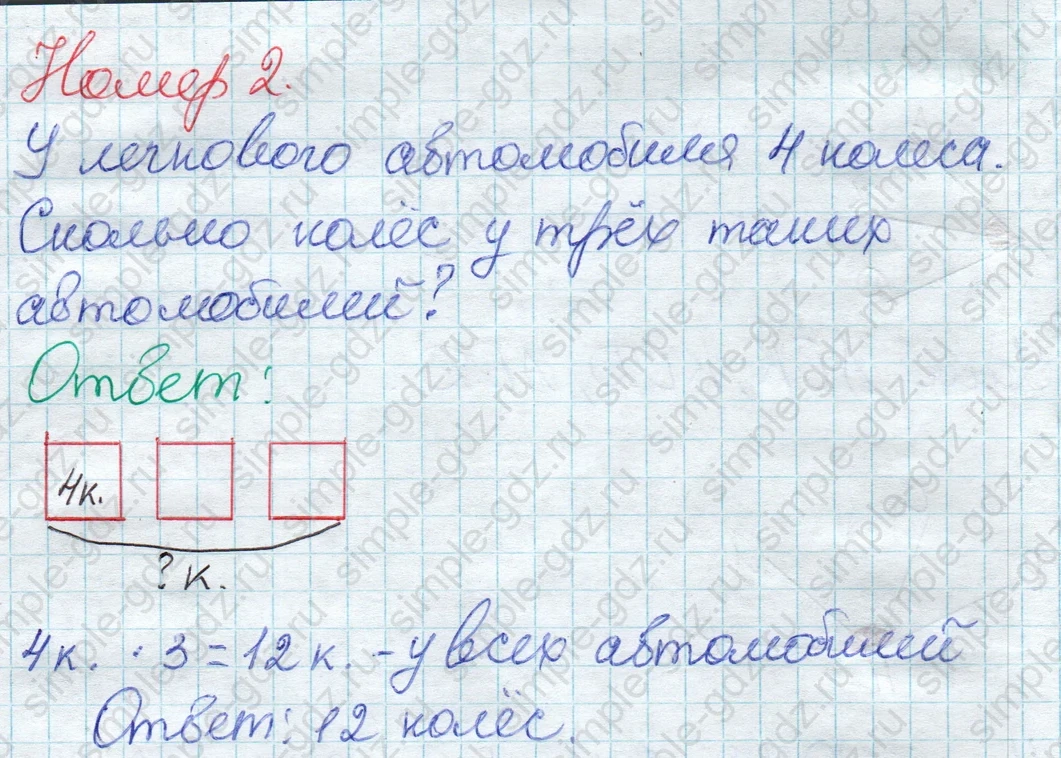 Номер 2.
У легкового автомобиля 4 колеса.
Сколько колёс у трёх таких
автомобилей?
Ответ:
4к.
? к.
4к. · 3 = 12 к. - у всех автомобилей
Ответ: 12 колёс.
simple-gdz.ru